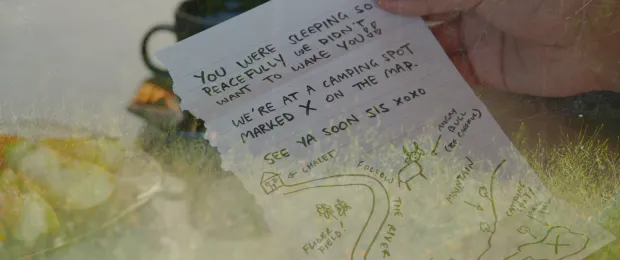 YOU WERE SLEEPING SO
PEACEFULLY WE DIDN'T
WANT TO WAKE YOU!!
WE'RE AT A CAMPING SPOT
MARKED X ON THE MAP.
SEE YA SOON SIS XOXO
CHALET
FOLLOW
THE RIVER
FLOWER
FIELD!
ANGRY
BULL
(BE CAREFUL)
MOUNTAIN